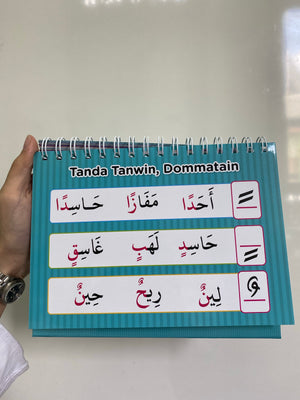 Tanda Tanwin, Dommatain
ـً أَحَدًا مَفَازًا حَـاسِدًا
ـٍ حَاسِدٍ لَهَبٍ غَاسِقٍ
ـٌ لِينٌ رِيحٌ حِينٌ